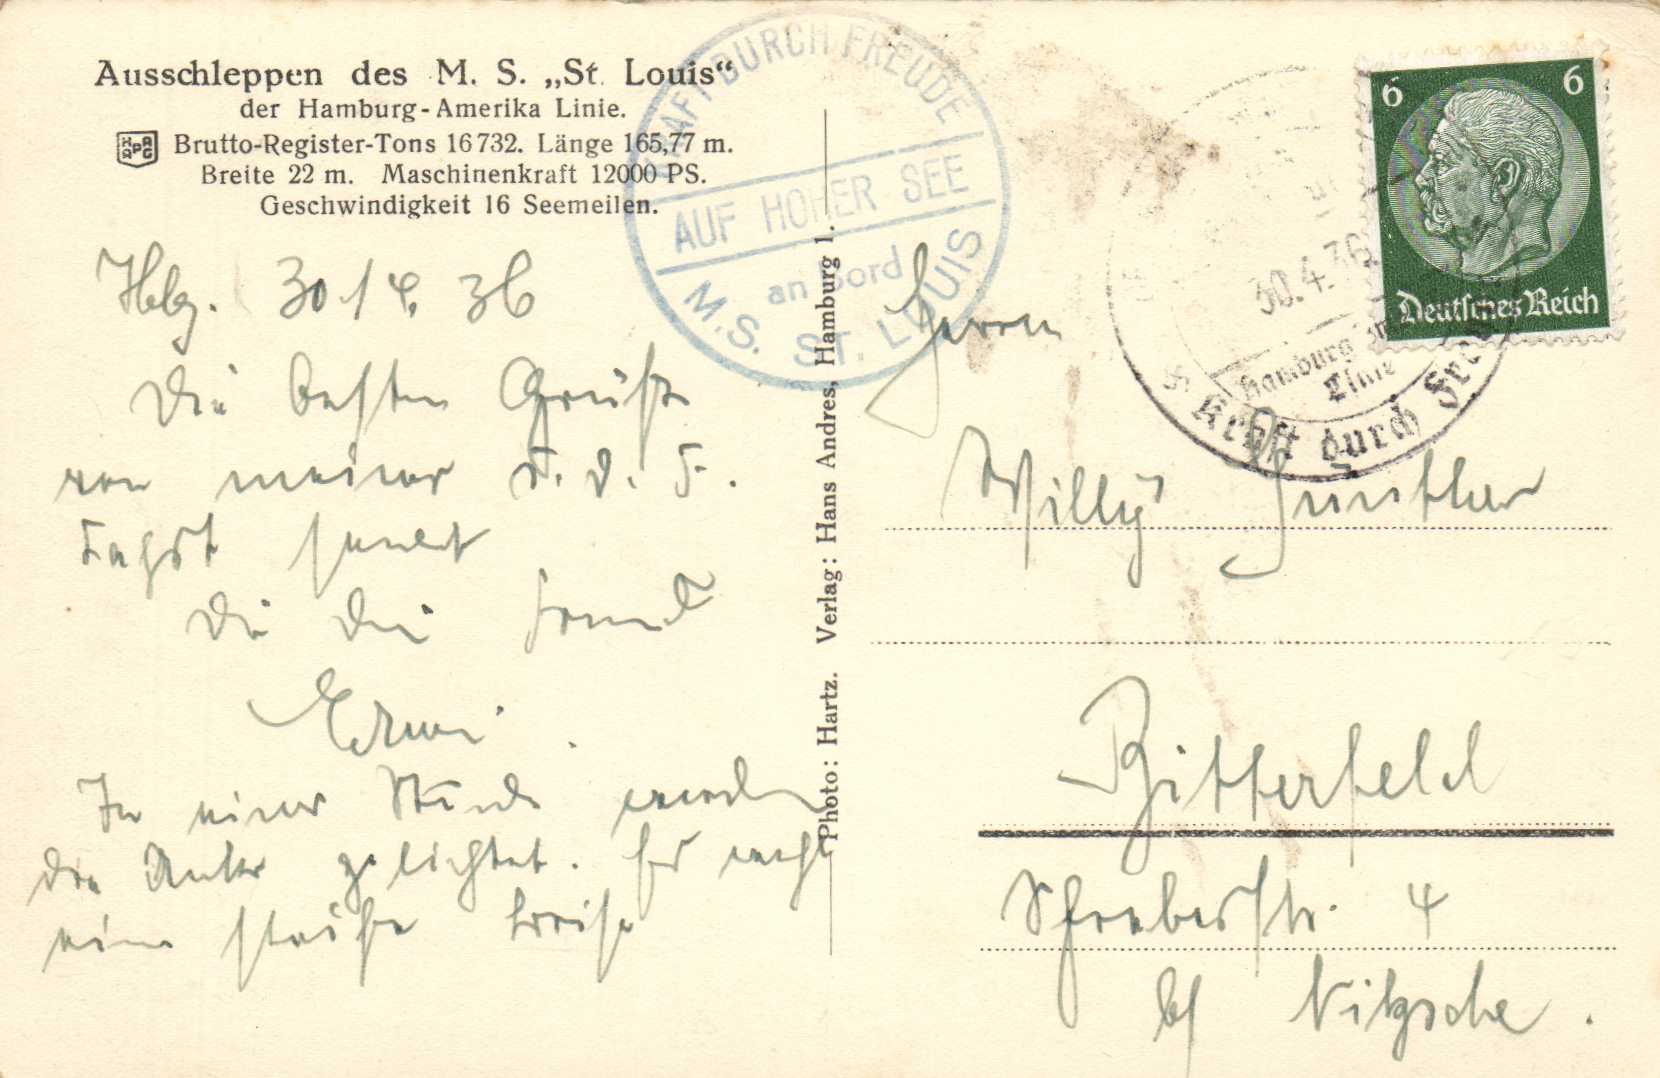 Ausschleppen des M. S. „St. Louis“
der Hamburg-Amerika Linie.
HAPAG
Brutto-Register-Tons 16732. Länge 165,77 m.
Breite 22 m. Maschinenkraft 12000 PS.
Geschwindigkeit 16 Seemeilen.
KRAFT DURCH FREUDE
AUF HOHER SEE
an Bord
M.S. ST. LOUIS
6 6
Deutsches Reich
30.4.36.
Hamburg
Linie
Kraft durch Freude
Hbg. 30/4. 36
Die besten Grüße
von meiner K. d. F.
Fahrt sendet
Dir Dein Freund
Erwin.
In einer Stunde werden
die Anker gelichtet. Es weht
eine steife Brise
Photo: Hartz. Verlag: Hans Andres, Hamburg 1.
Herrn
Willy Günther
Bitterfeld
Schreberstr. 4
b/ Nitzsche.